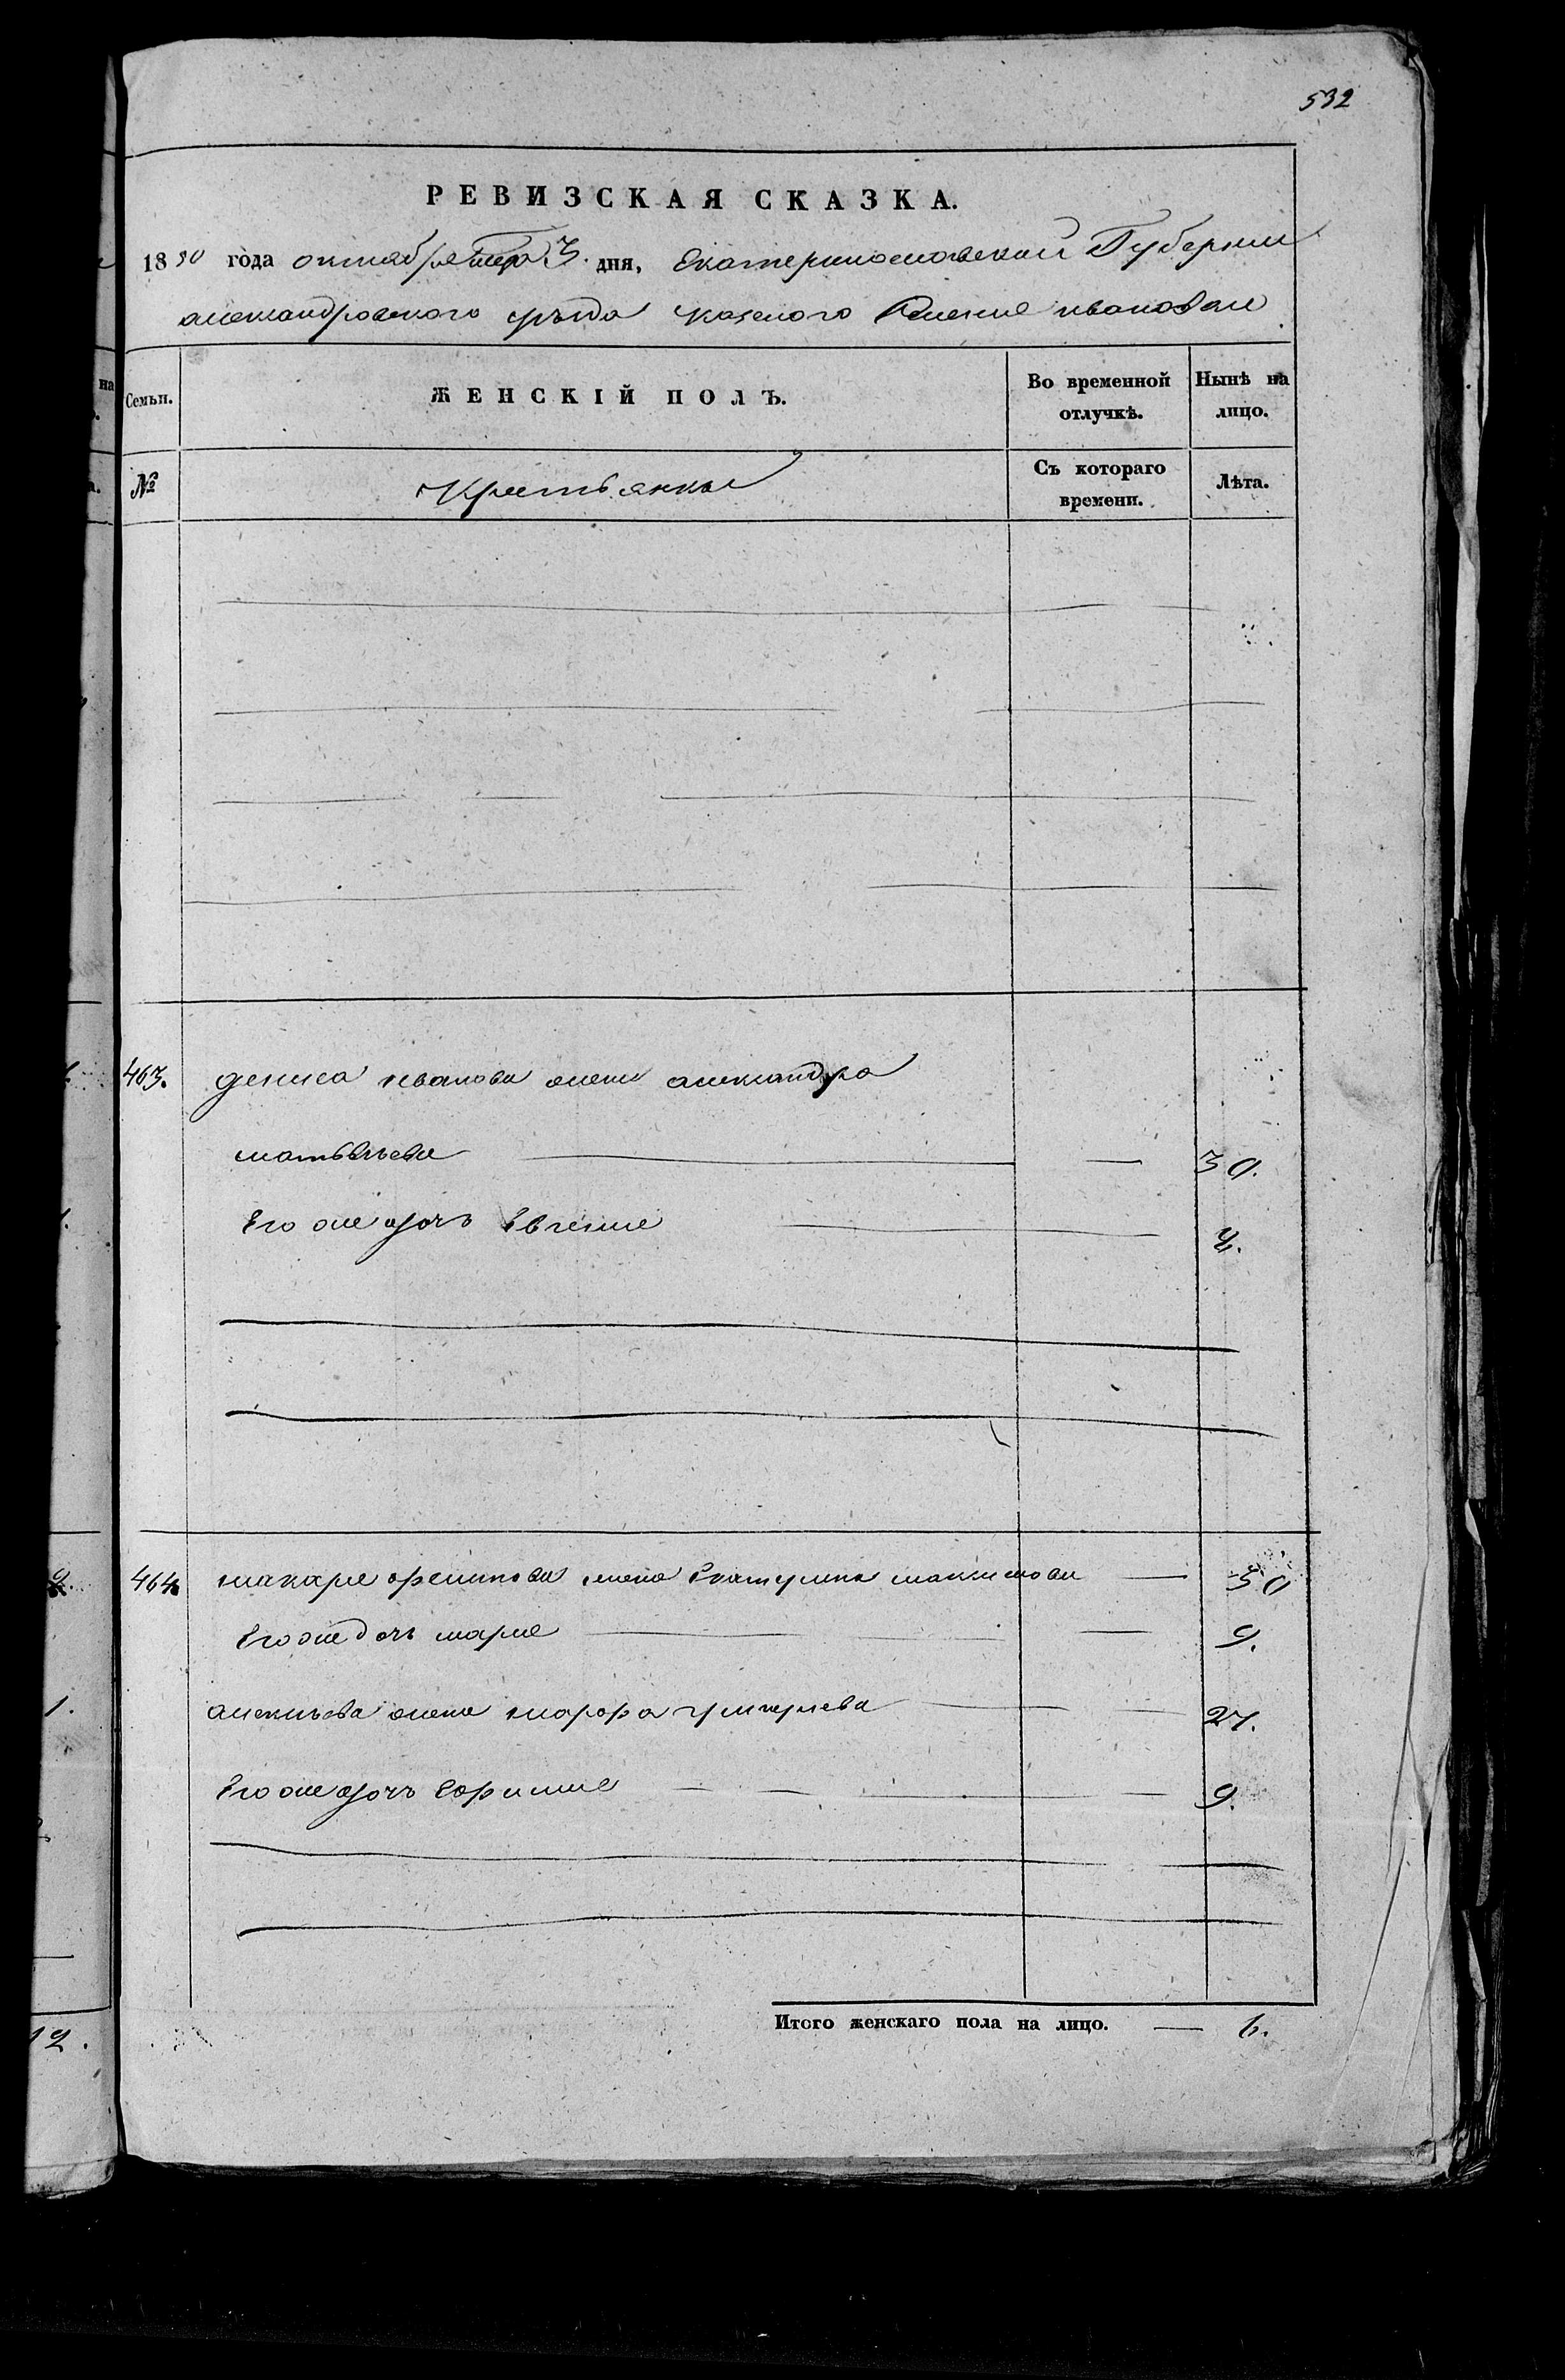 532
РЕВИЗСКАЯ СКАЗКА.
1850 года октября 3 дня, Екатеринославской Губернии
александровского уѣзда казеного селения
Семьи. ЖЕНСКІЙ ПОЛЪ. Во временной отлучкѣ. Нынѣ на лицо.
№ Крестьянки Съ котораго времени. Лѣта.
463. дениса иванова жена александра
матвѣева 30.
Его же дочь Евгения 2.
464 макара жена Екатерина максимова 50
Его же дочь мария 9.
алексѣева жена марфа григорьева 27.
Его же дочь 9.
Итого женскаго пола на лицо. 6.
12.